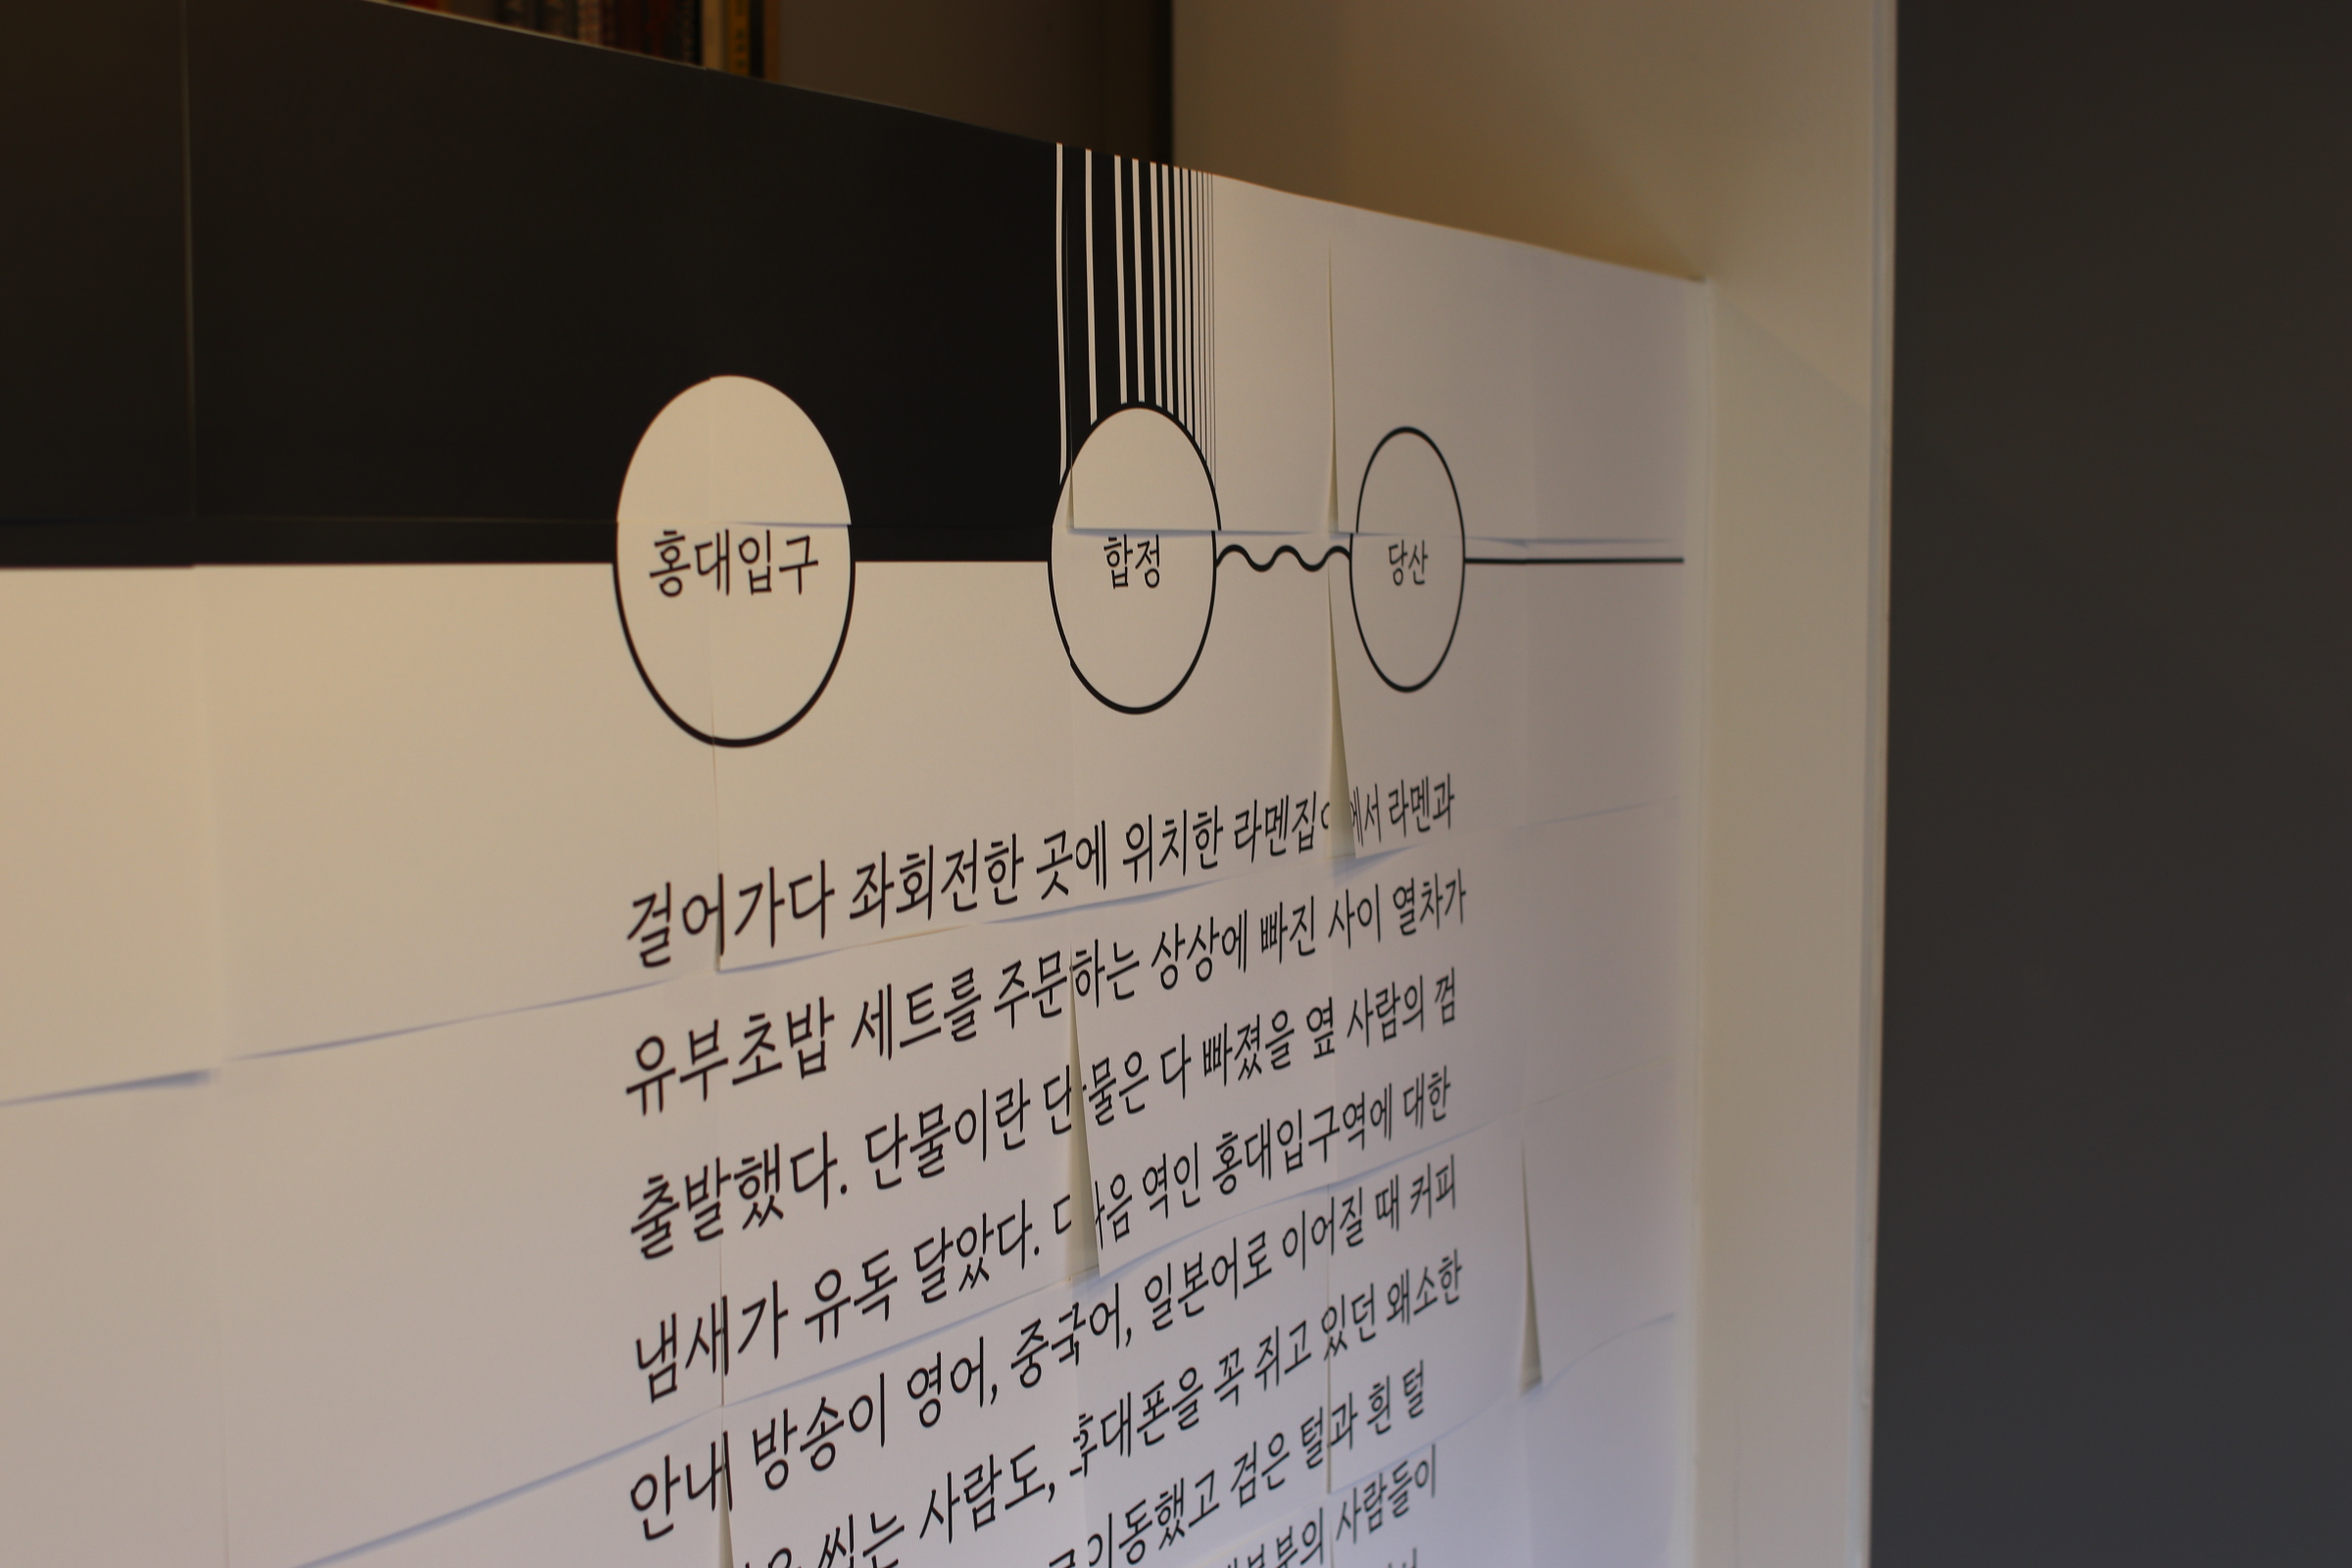 홍대입구 합정 당산
걸어가다 좌회전한 곳에 위치한 라멘집에서 라멘과
유부초밥 세트를 주문하는 상상에 빠진 사이 열차가
출발했다. 단물이란 단물은 다 빠졌을 옆 사람의 껌
냄새가 유독 달았다. 다음 역인 홍대입구역에 대한
안내 방송이 영어, 중국어, 일본어로 이어질 때 커피
씹는 사람도, 휴대폰을 꼭 쥐고 있던 왜소한
이동했고 검은 털과 흰 털
사람들이